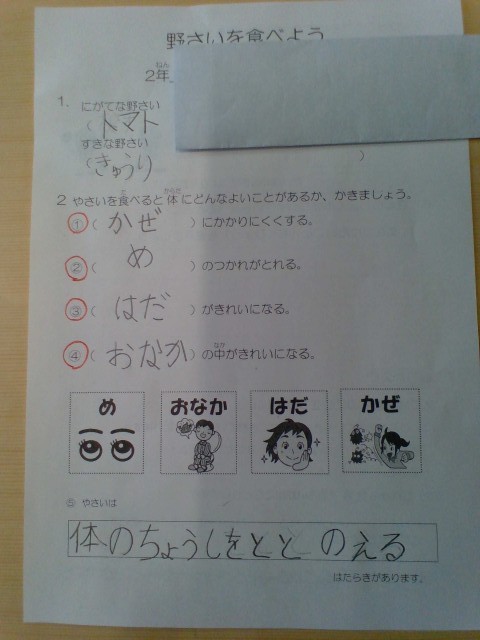 野さいを食べよう
ねん
2年
1. にがてな野さい
(トマト
すきな野さい
(きゅうり )
2 やさいを食べると体にどんなよいことがあるか、かきましょう。
た からだ
①(かぜ)にかかりにくくする。
②(め)のつかれがとれる。
③(はだ)がきれいになる。
④(おなか)の中がきれいになる。
なか
め おなか はだ かぜ
⑤ やさいは
体のちょうしをととのえる
はたらきがあります。